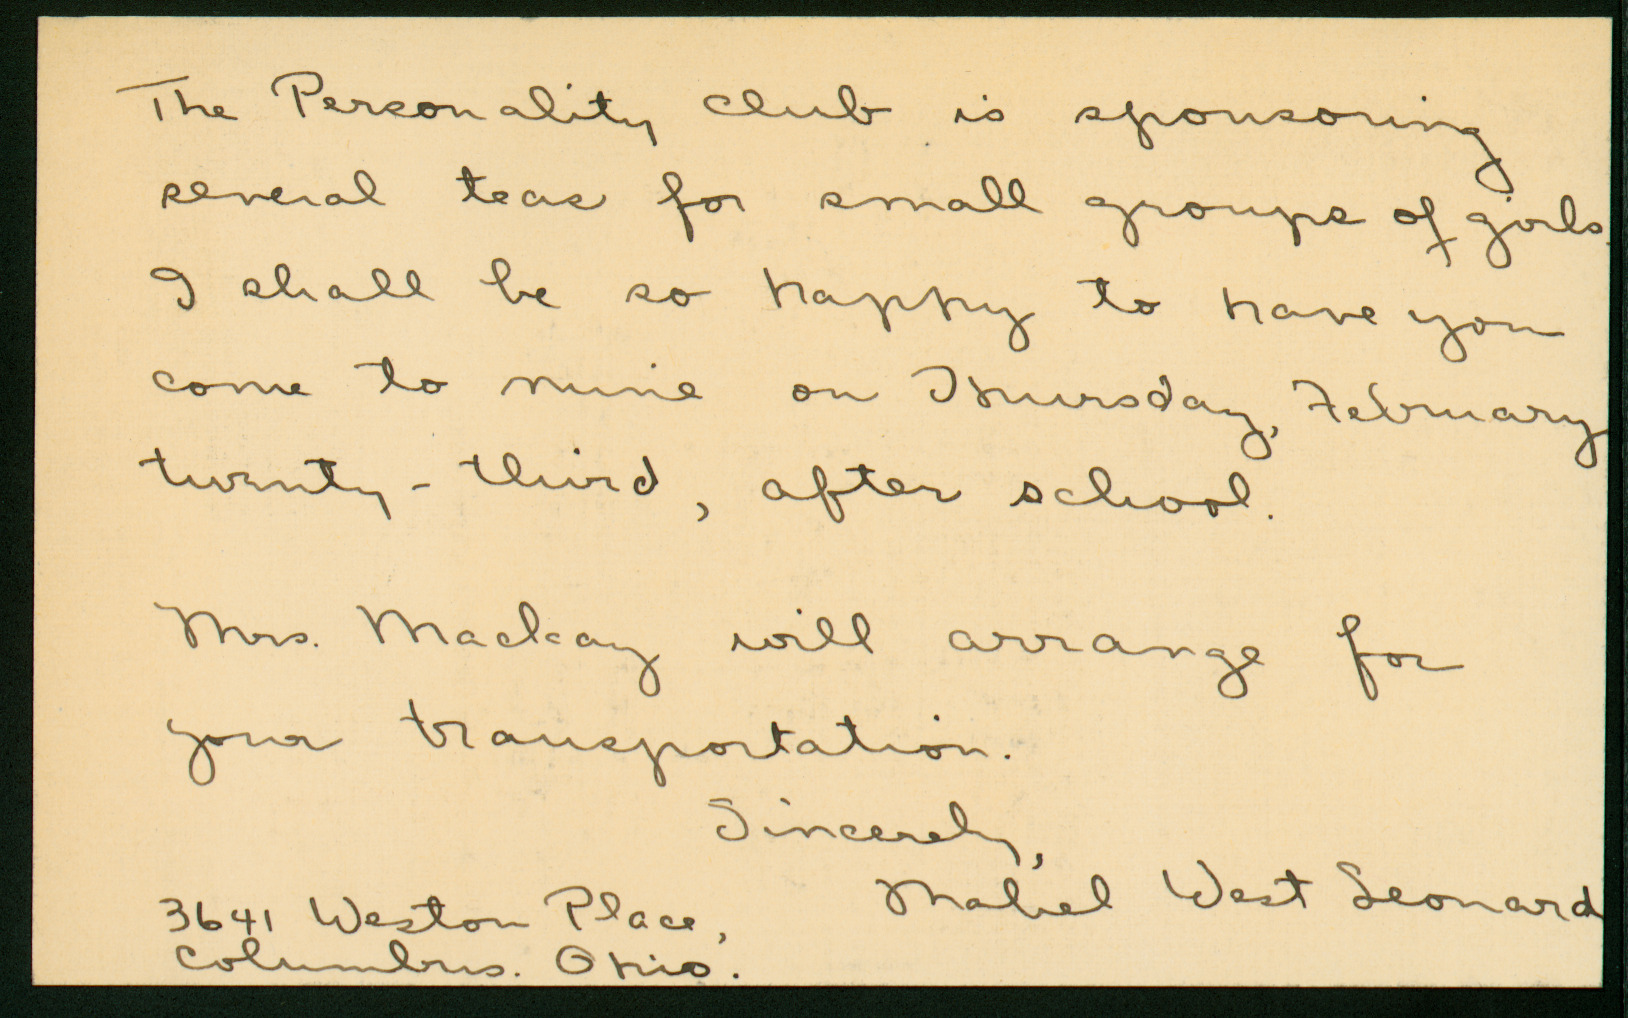 The Personality Club is sponsoring
several teas for small groups of girls.
I shall be so happy to have you
come to mine on Thursday, February
twenty-third, after school.
Mrs. Mackay will arrange for
your transportation.
Sincerely,
Mabel West Leonard
3641 Weston Place,
Columbus. Ohio.